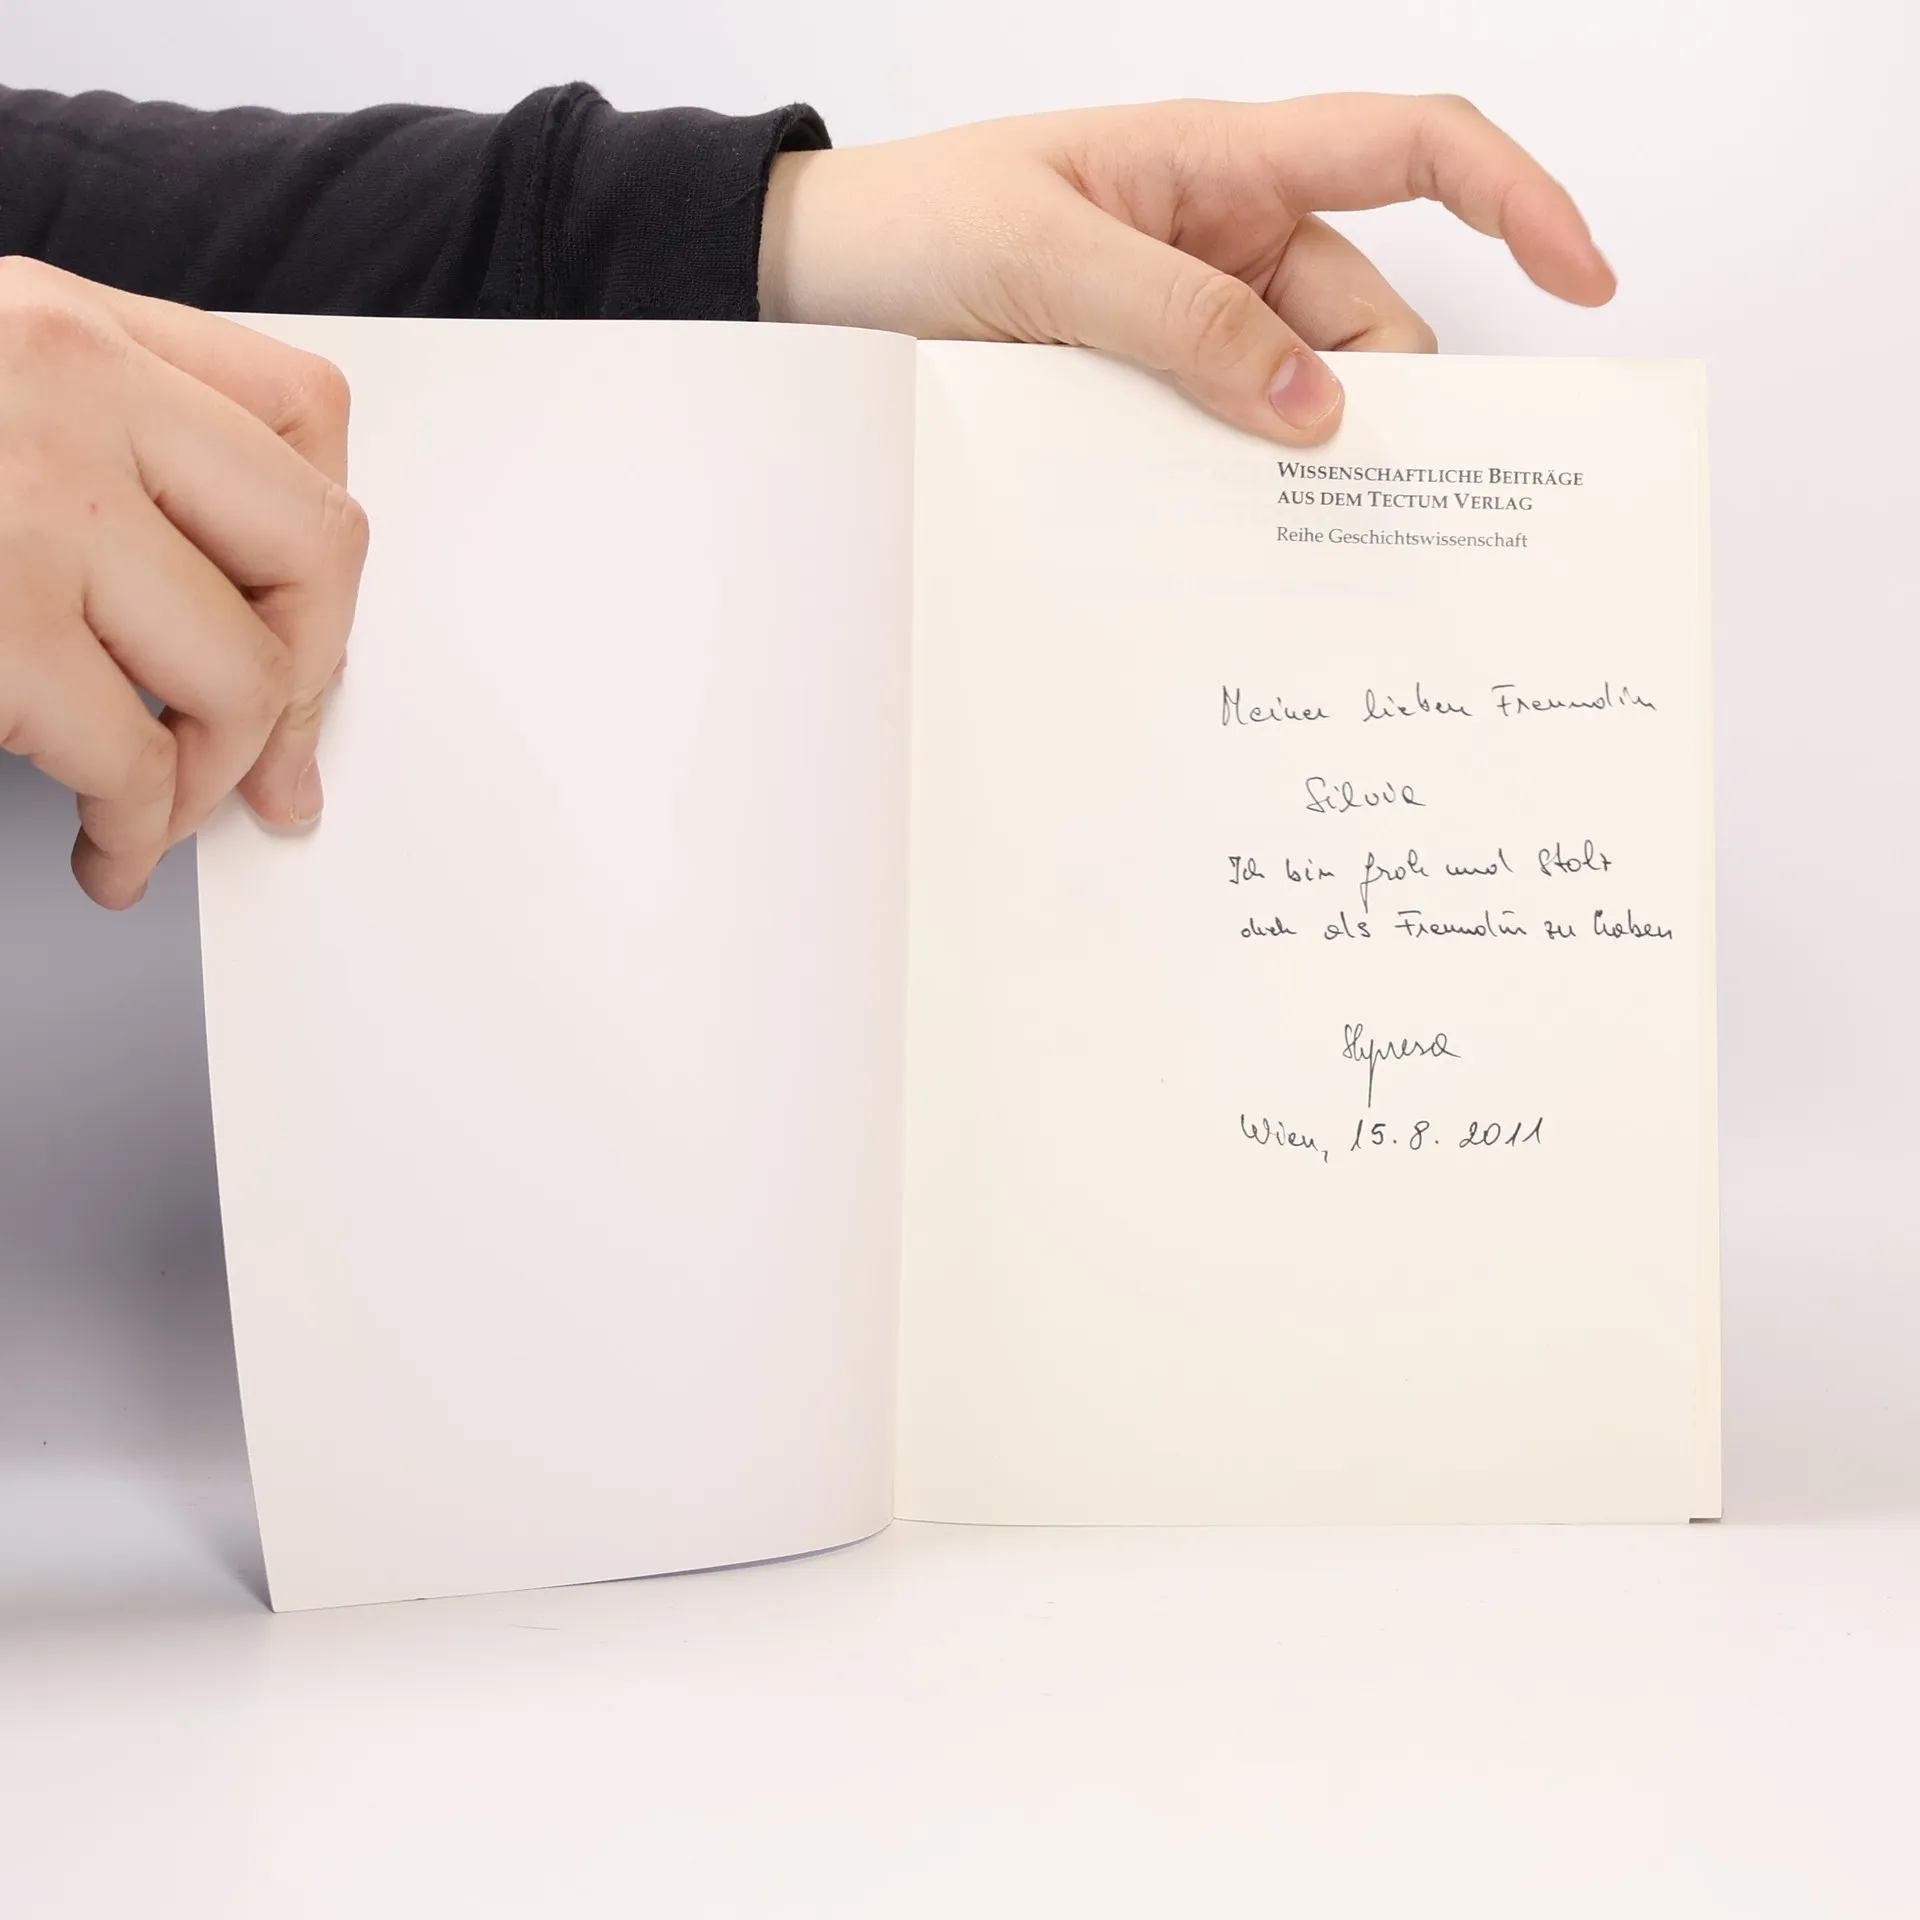 WISSENSCHAFTLICHE BEITRÄGE
AUS DEM TECTUM VERLAG
Reihe Geschichtswissenschaft
Meiner lieben Freundin
Silvia
Ich bin froh und stolz
dich als Freundin zu haben
Wien, 15. 8. 2011